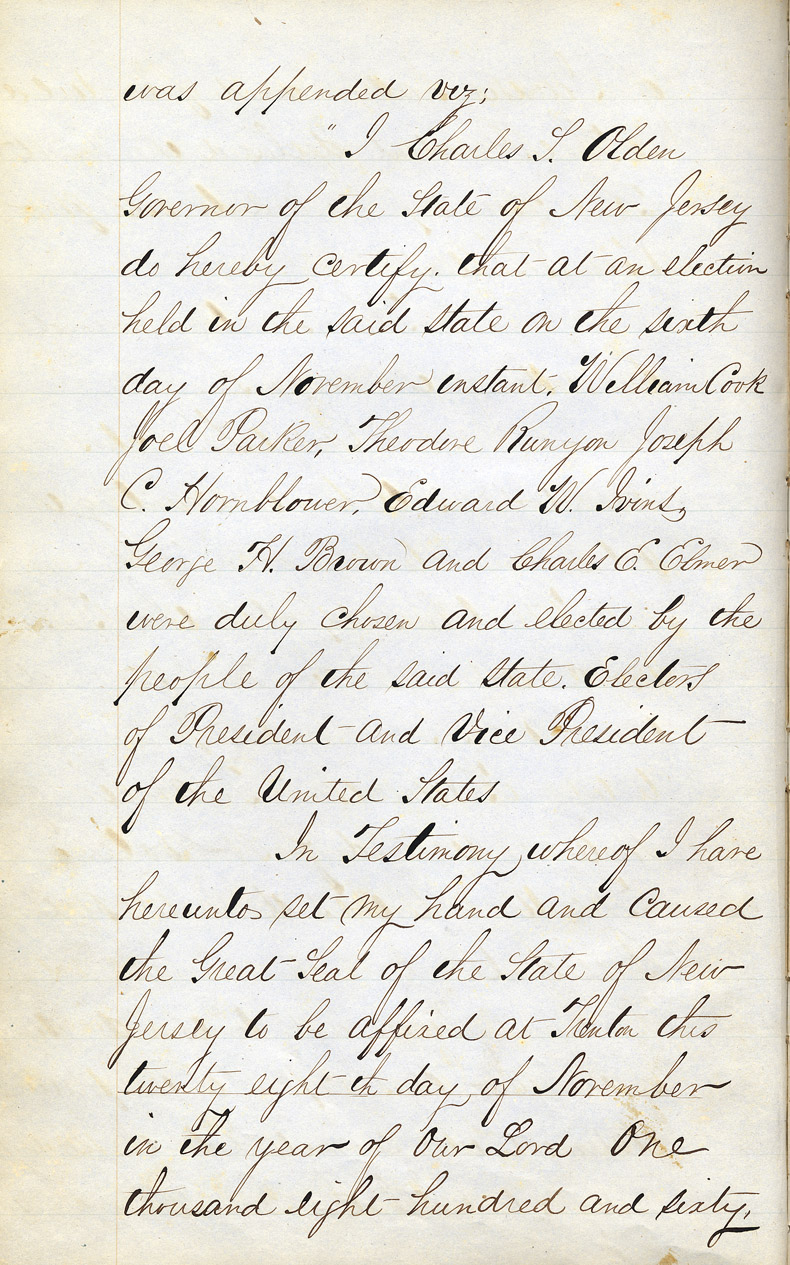 was appended viz;
" I Charles S. Olden
Governor of the State of New Jersey
do hereby certify. that at an election
held in the said state on the sixth
day of November instant. William Cook
Joel Parker, Theodore Runyon Joseph
C. Hornblower, Edward W. Ivins,
George H. Brown and Charles E. Elmer
were duly chosen and elected by the
people of the said state. Electors
of President and Vice President
of the United States
In Testimony whereof I have
hereunto set my hand and Caused
the Great Seal of the State of New
Jersey to be affixed at Trenton this
twenty eighth day of November
in the year of Our Lord One
thousand eight hundred and sixty,